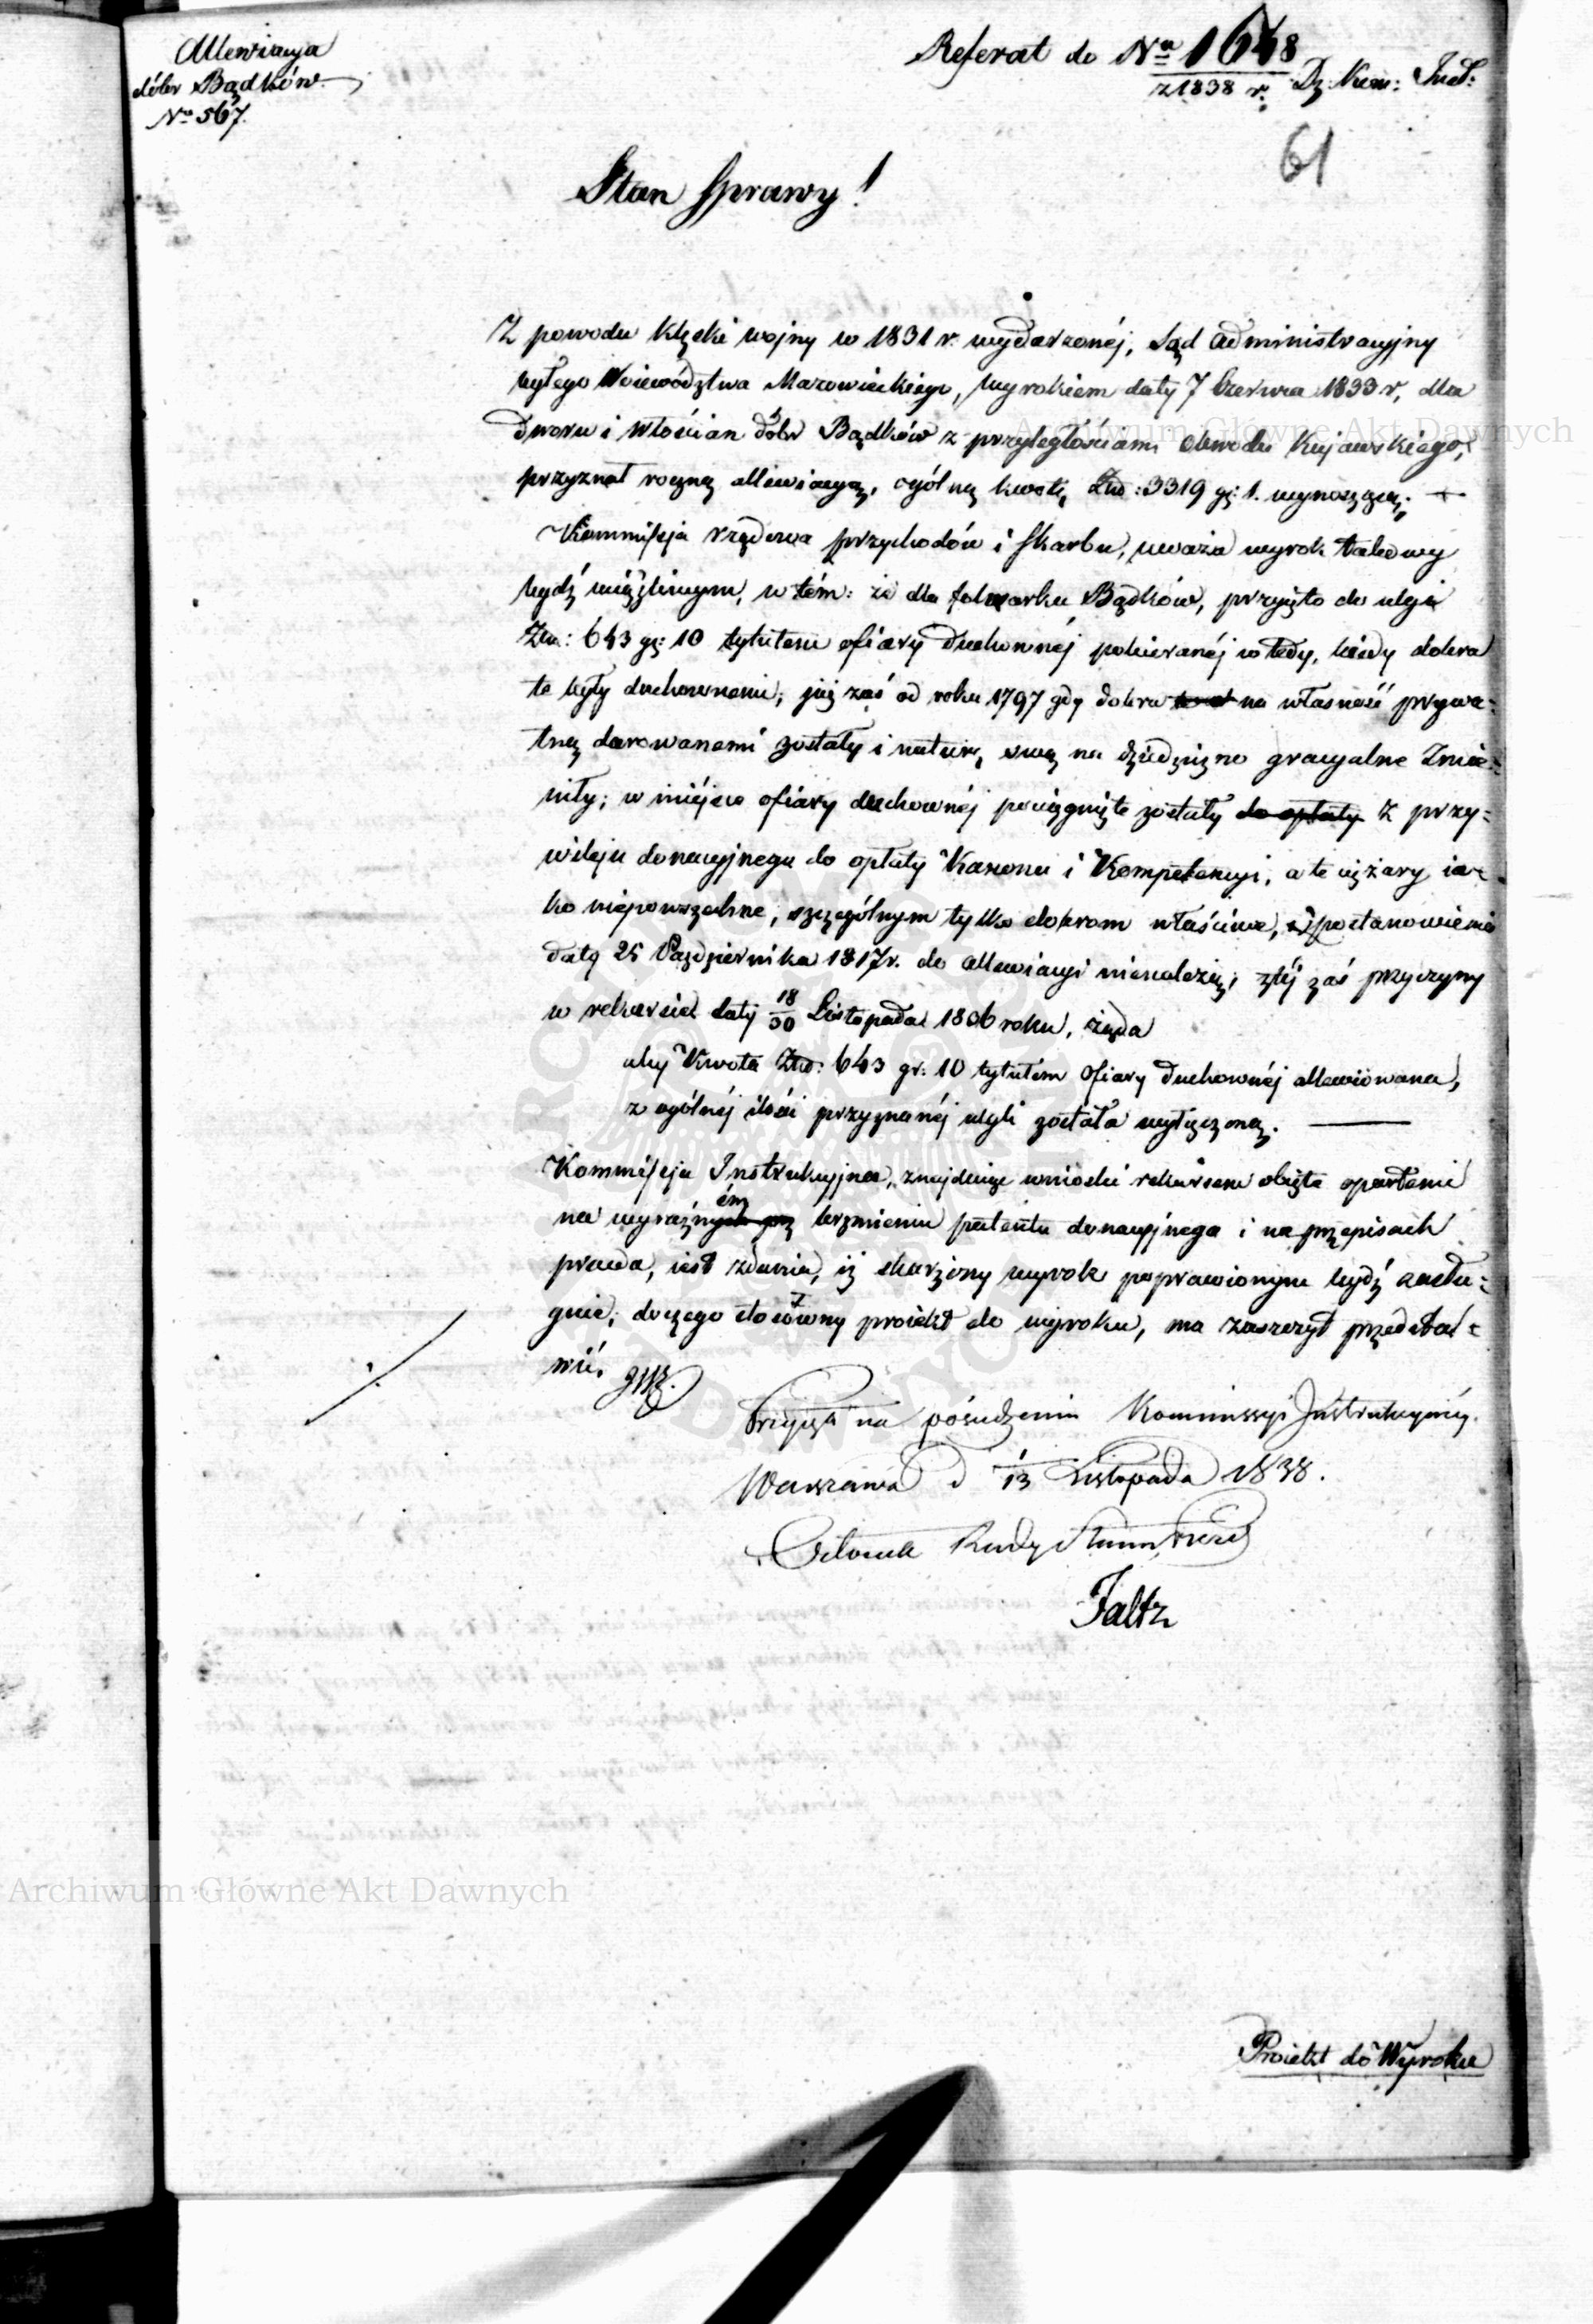 Allewiacya
dóbr Bądków
No 567.
Referat do No 1648
z 1838 r. Dz: Kom: Inst:
61
Stan Sprawy!
Z powodu klęski wojny w 1831 r. wydarzonéj, Sąd Administracyjny
byłego Województwa Mazowieckiego, wyrokiem daty 7 Czerwca 1833 r, dla
Dworu i Włościan dóbr Bądków z przyległościami Obwodu Kujawskiego,
przyznał roczną allewiacyą, ogólną kwotę Złp: 3319 gr: 1. wynoszącą.
Kommissja rządowa przychodów i Skarbu, uważa wyrok takowy
bydź uciążliwym, w tém: że dla folwarku Bądków, przyjęto do ulgi
Złp: 643 gr: 10 tytułem ofiary Duchownéj pobieranéj wtedy, kiedy dobra
te były duchownemi; już zaś od roku 1797 gdy dobra na własność prywa=
tną darowanemi zostały i naturę swą na dziedziczno gracyalne zmie=
niły; w miejsce ofiary duchownéj pociągnięte zostały do opłaty z przy=
wileju donacyjnego do opłaty Kanonu i Kompetencyi, a te ciężary ia=
ko niepowszechne, szczególnym tylko dobrom właściwe, postanowienia
daty 25 Października 1817 r. do allewiacyi nienależą; z téj zaś przyczyny
w rekursie daty 18/30 Listopada 1836 roku, żąda
aby Kwota Złp: 643 gr: 10 tytułem Ofiary Duchownéj allewiowana,
z ogólnéj ilości przyznanéj ulgi została wyłączoną.
Kommissja Instrukcyjna, znajdując wnioski rekursem objęte opartemi
na wyraźném brzmieniu patentu donacyjnego i na przepisach
prawa, iest zdania, iż skarżony wyrok poprawionym bydź zasłu=
guie; do czego stosowny proiekt do wyroku, ma zaszczyt przedsta=
wić.
Przyjęta na posiedzeniu Kommissyi Instrukcyjnéj.
Warszawa d 1/13 Listopada 1838.
Członek Rady Stanu
Faltz
Proiekt do Wyroku
Archiwum Główne Akt Dawnych
Archiwum Główne Akt Dawnych